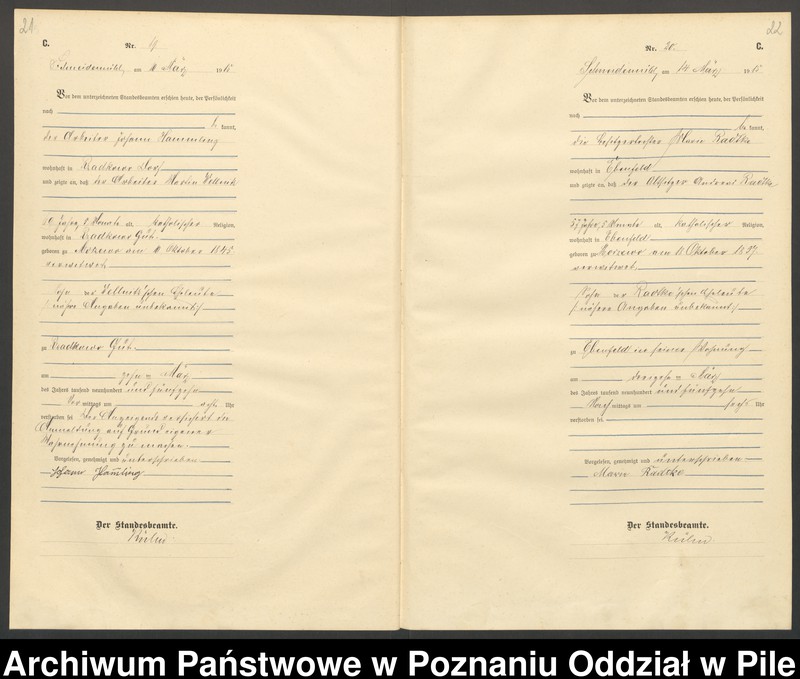 21
C.
Nr. 19
Schneidemühl, am 11 März 1915
Vor dem unterzeichneten Standesbeamten erschien heute, der Persönlichkeit
nach
kannt,
der Arbeiter Johann Hammling
wohnhaft in Radkowo Dorf
und zeigte an, daß der Arbeiter Martin
69 Jahre, 5 Monate alt, katholischer Religion,
wohnhaft in Radkowo Gut
geboren zu am Oktober 1845
verwitwet
Sohn der Eheleute
nähere Angaben unbekannt
zu Radkowo Gut
am zehn = März
des Jahres tausend neunhundert und fünfzehn
Vor mittags um acht Uhr
verstorben sei. Der Anzeigende versichert die
Anmeldung auf Grund eigener
Wahrnehmung zu machen.
Vorgelesen, genehmigt und unterschrieben
Johann Hamling
Der Standesbeamte.
22
Nr. 20 C.
Schneidemühl, am 14 März 1915
Vor dem unterzeichneten Standesbeamten erschien heute, der Persönlichkeit
nach
kannt,
die Besitzertochter Marie Radtke
wohnhaft in Ebenfeld
und zeigte an, daß der Altsitzer Andreas Radtke
87 Jahre, 5 Monate alt, katholischer Religion,
wohnhaft in Ebenfeld
geboren zu am Oktober 1827
verwitwet
Sohn der Radtke'schen Eheleute
nähere Angaben unbekannt
zu Ebenfeld in seiner Wohnung
am dreizehn = März
des Jahres tausend neunhundert und fünfzehn
Nach mittags um sechs Uhr
verstorben sei.
Vorgelesen, genehmigt und unterschrieben
Marie Radtke
Der Standesbeamte.
Archiwum Państwowe w Poznaniu Oddział w Pile